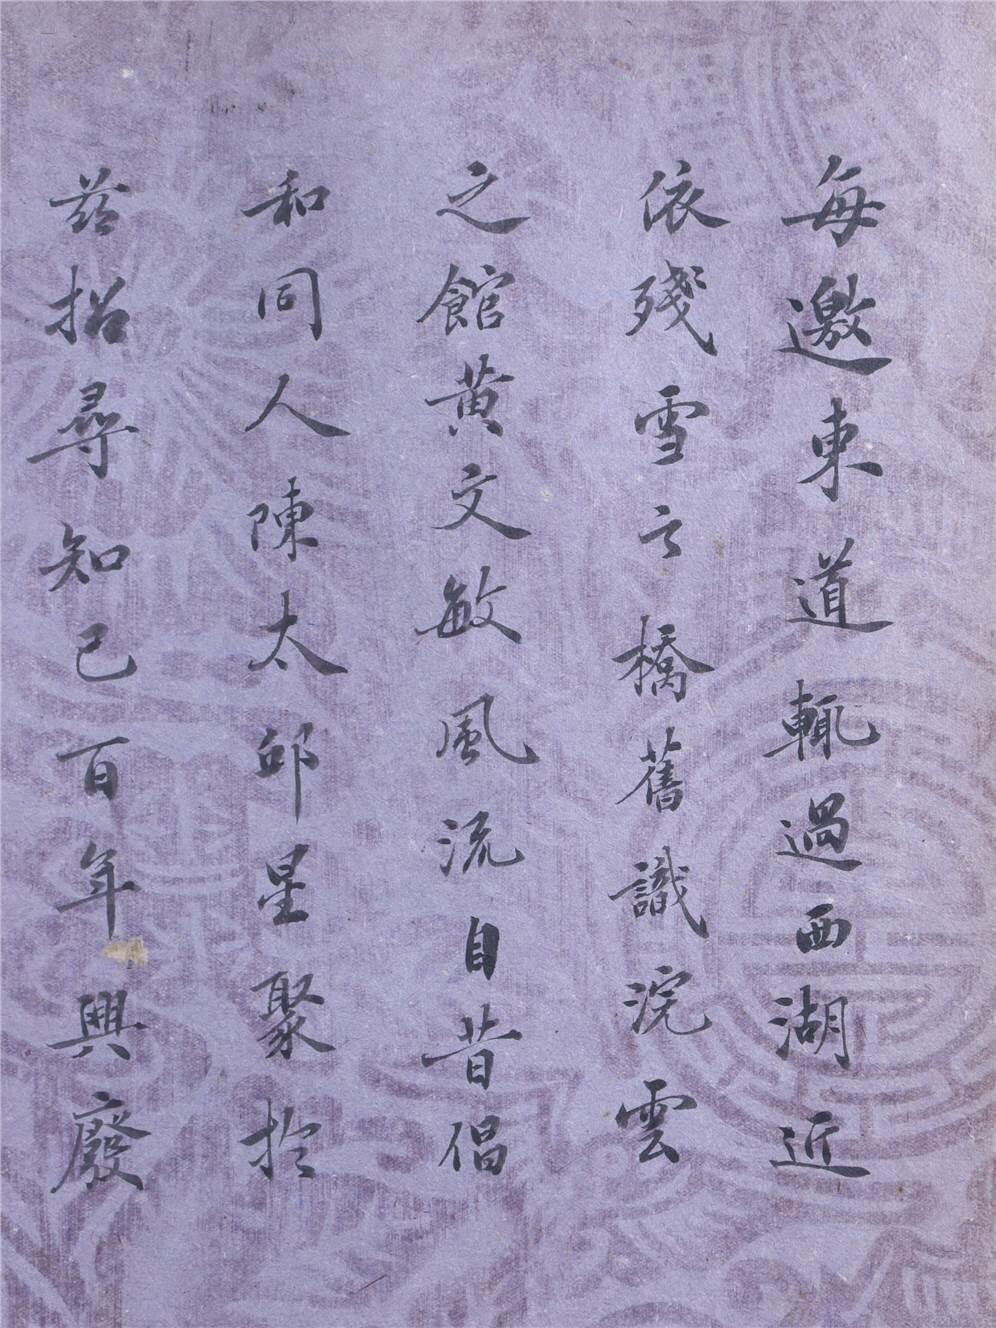 每邀東道輒過西湖近
依殘雪之橋舊識浣雲
之館黃文敏風流自昔倡
和同人陳太邱星聚於
茲招尋知己百年興廢